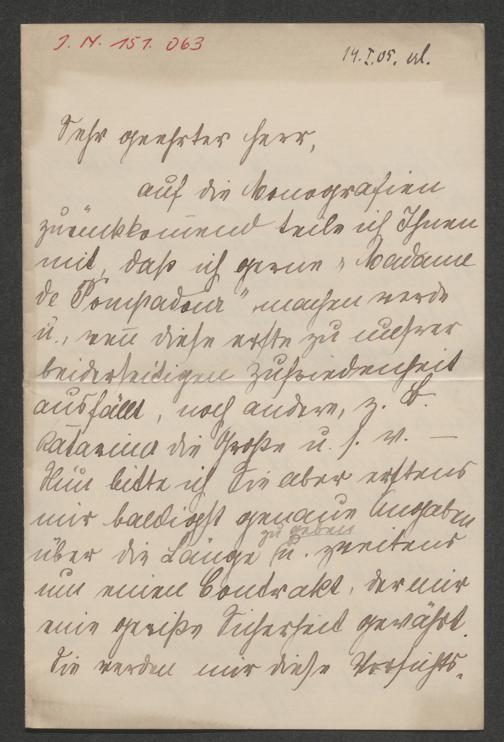 J. N. 151.063
14.I.05. 
Sehr geehrter Herr,
auf die Monografien
zurückkommend teile ich Ihnen
mit, daß ich gerne „Madame
de Pompadour" machen werde
u., wenn diese erste zu unsrer
beiderseitigen Zufriedenheit
ausfällt, noch andere, z. B.
Katarina die Große u. s. w. —
Nun bitte ich Sie aber erstens
mir baldigst genaue Angaben
zu geben
über die Länge u. zweitens
um einen Contrakt, der mir
eine gewiße Sicherheit gewährt.
Sie werden mir diese Vorsichts-